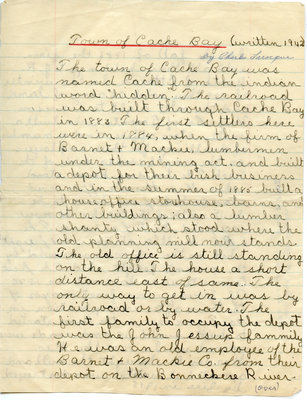 Town of Cache Bay (written 1942)
by Charle
The town of Cache Bay was
named Cache from the indian
word "hidden". The railroad
was built through Cache Bay
in 1883. The first sittlers here
were in 1884, when the firm of
Barnet & Mackie, lumbermen
under the mining act, and built
a depot for their bush business
and in the summer of 1885 built a
house, office storhouse, barns, and
other buildings; also a lumber
shanty which stood where the
old planning mill now stands.
The old office is still standing
on the hill. The house a short
distance east of same. The
only way to get in was by
railroad or by water. The
first family to occupy the depot
was the John Jessup fammily.
He was an old employee of the
Barnet & Mackie Co. from their
depot on the Bonnechere River.
(over)